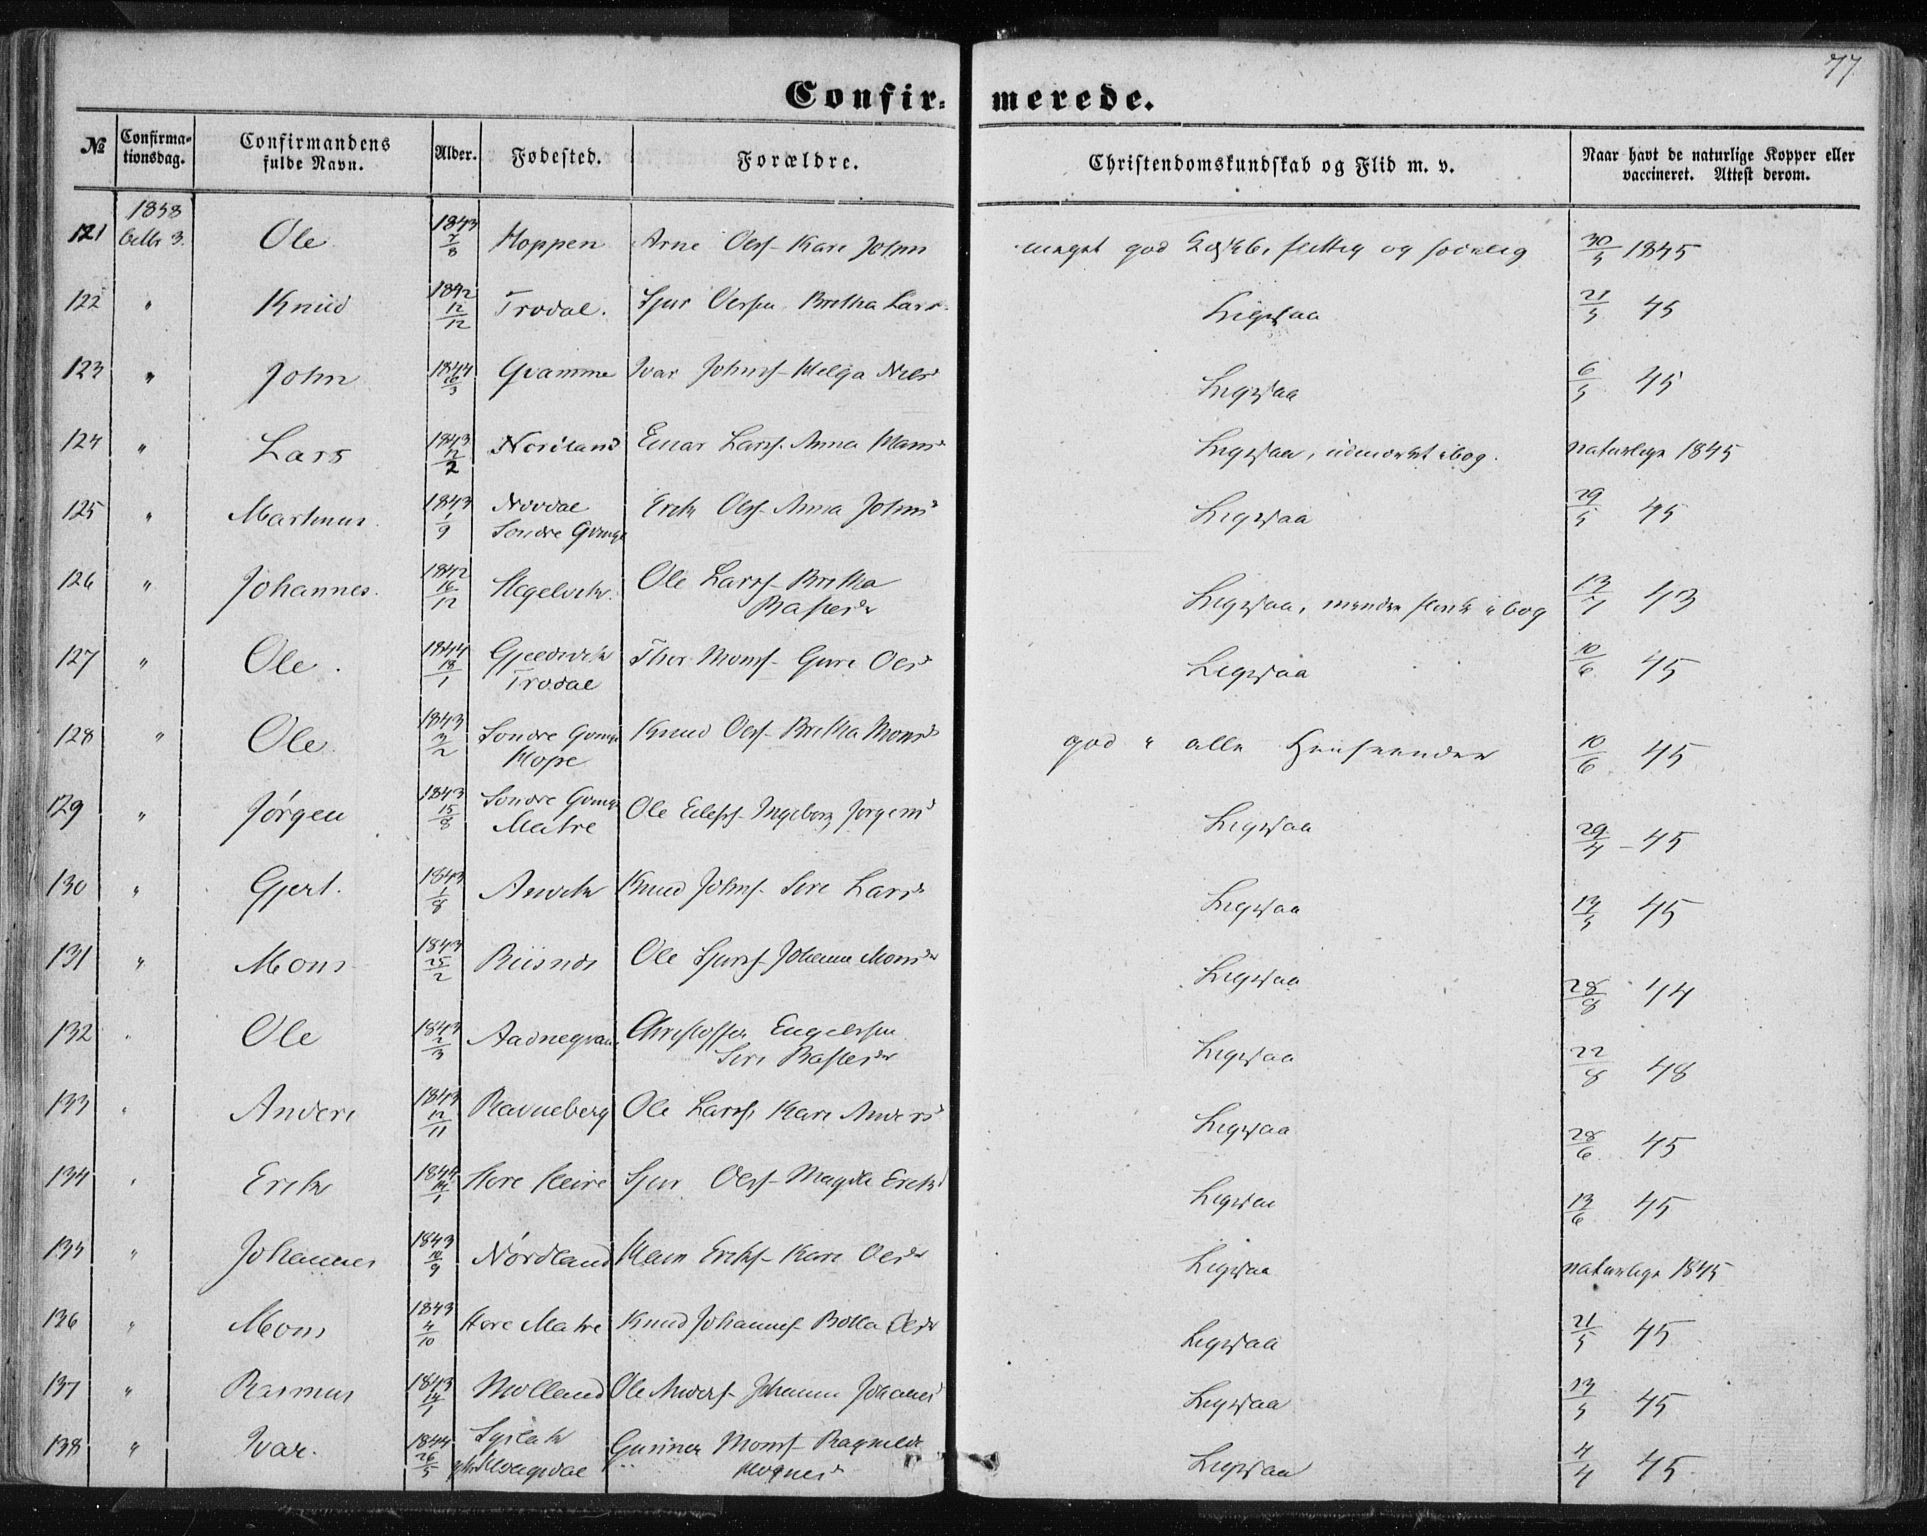 77
Confir- merede.
№ Confirma-tionsdag. Confirmandens fulde Navn. Alder. Fødested. Forældre. Christendomskundskab og Flid m. v. Naar havt de naturlige Kopper eller vaccineret. Attest derom.
121 1858 Octbr 3. Ole 1843 7/8 Hoppen Arne Olsf- Kari Johns meget god flittig og sædelig 30/5 1845
122 " Knud 1842 12/12 Trodal. Sjur Olsen Britha Lars Ligesaa 21/5 45
123 " John 1844 16/3 Qvamme Ivar Johnsf- Helga Nilsd Ligesaa 6/5 45
124 " Lars 1843 12/2 Nordland Einar Larsf. Anna Hansd Ligesaa, udmærket i bog. naturlige 1845
125 " Martinus 1843 1/9 Novdal Søndre Qvinge Erik Olsf- Anna Johnsd Ligesaa 29/5 45
126 " Johannes. 1842 16/12 Hegelvik. Ole Larsf- Britha Rasmusd Ligesaa, mindre stærk i bog 13/7 43
127 " Ole. 1844 18/1 Gjeldvik Trodal Thor Monsf- Guri Olsd Ligesaa 10/6 45
128 " Ole 1843 3/2 Søndre Qvinge Hope Knud Olsf- Britha Monsd god i alle Henseender 10/6 45
129 " Jørgen 1843 15/8 Søndre Qvinge Matre Ole Ellefsf- Ingeborg Jørgensd Ligesaa 29/4 - 45
130 " Gjert. 1843 1/8 Andvik Knud Johnsf- Siri Larsd Ligesaa 13/5 45
131 " Mons 1843 25/2 Riisnes Ole Sjursf- Johanna Monsdr Ligesaa 28/8 44
132 " Ole 1843 2/3 Aadneqvam. Christoffer Engelsen Siri Ligesaa 22/8 48
133 " Anders 1843 12/11 Ravneberg Ole Larsf, Kari Andersd Ligesaa 28/6 45
134 " Erik 1844 14/1 Store Steire Sjur Olsf- Magda Eriksd Ligesaa 13/6 45
135 " Johannes 1843 10/9 Nordland Hans Eriksf- Kari Olsdr Ligesaa naturlige 1845
136 " Mons 1843 4/10 Store Matre Knud Johannesf- Bolla Olsdr Ligesaa 21/5 45
137 " Rasmus 1843 14/1 Molland Ole Andersf- Johanna Johannesd Ligesaa 13/5 45
138 " Ivar. 1844 26/5 Gunner Monsf- Ragnilde Mognesd Ligesaa 4/4 45